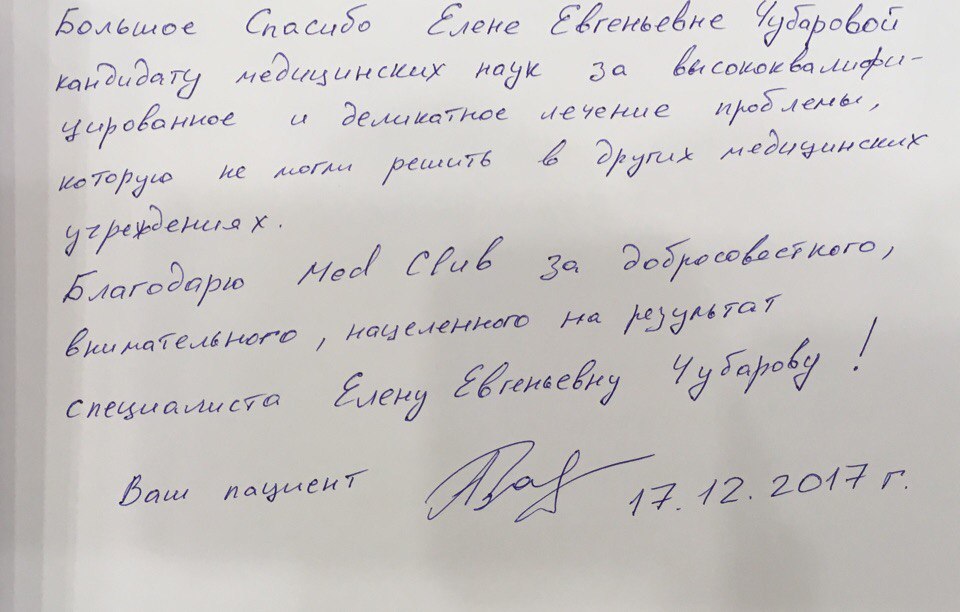 Большое Спасибо Елене Евгеньевне Чубаровой
кандидату медицинских наук за высококвалифи-
цированное и деликатное лечение проблемы,
которую не могли решить в других медицинских
учреждениях.
Благодарю Med Club за добросовестного,
внимательного, нацеленного на результат
специалиста Елену Евгеньевну Чубарову!
Ваш пациент 17.12.2017 г.